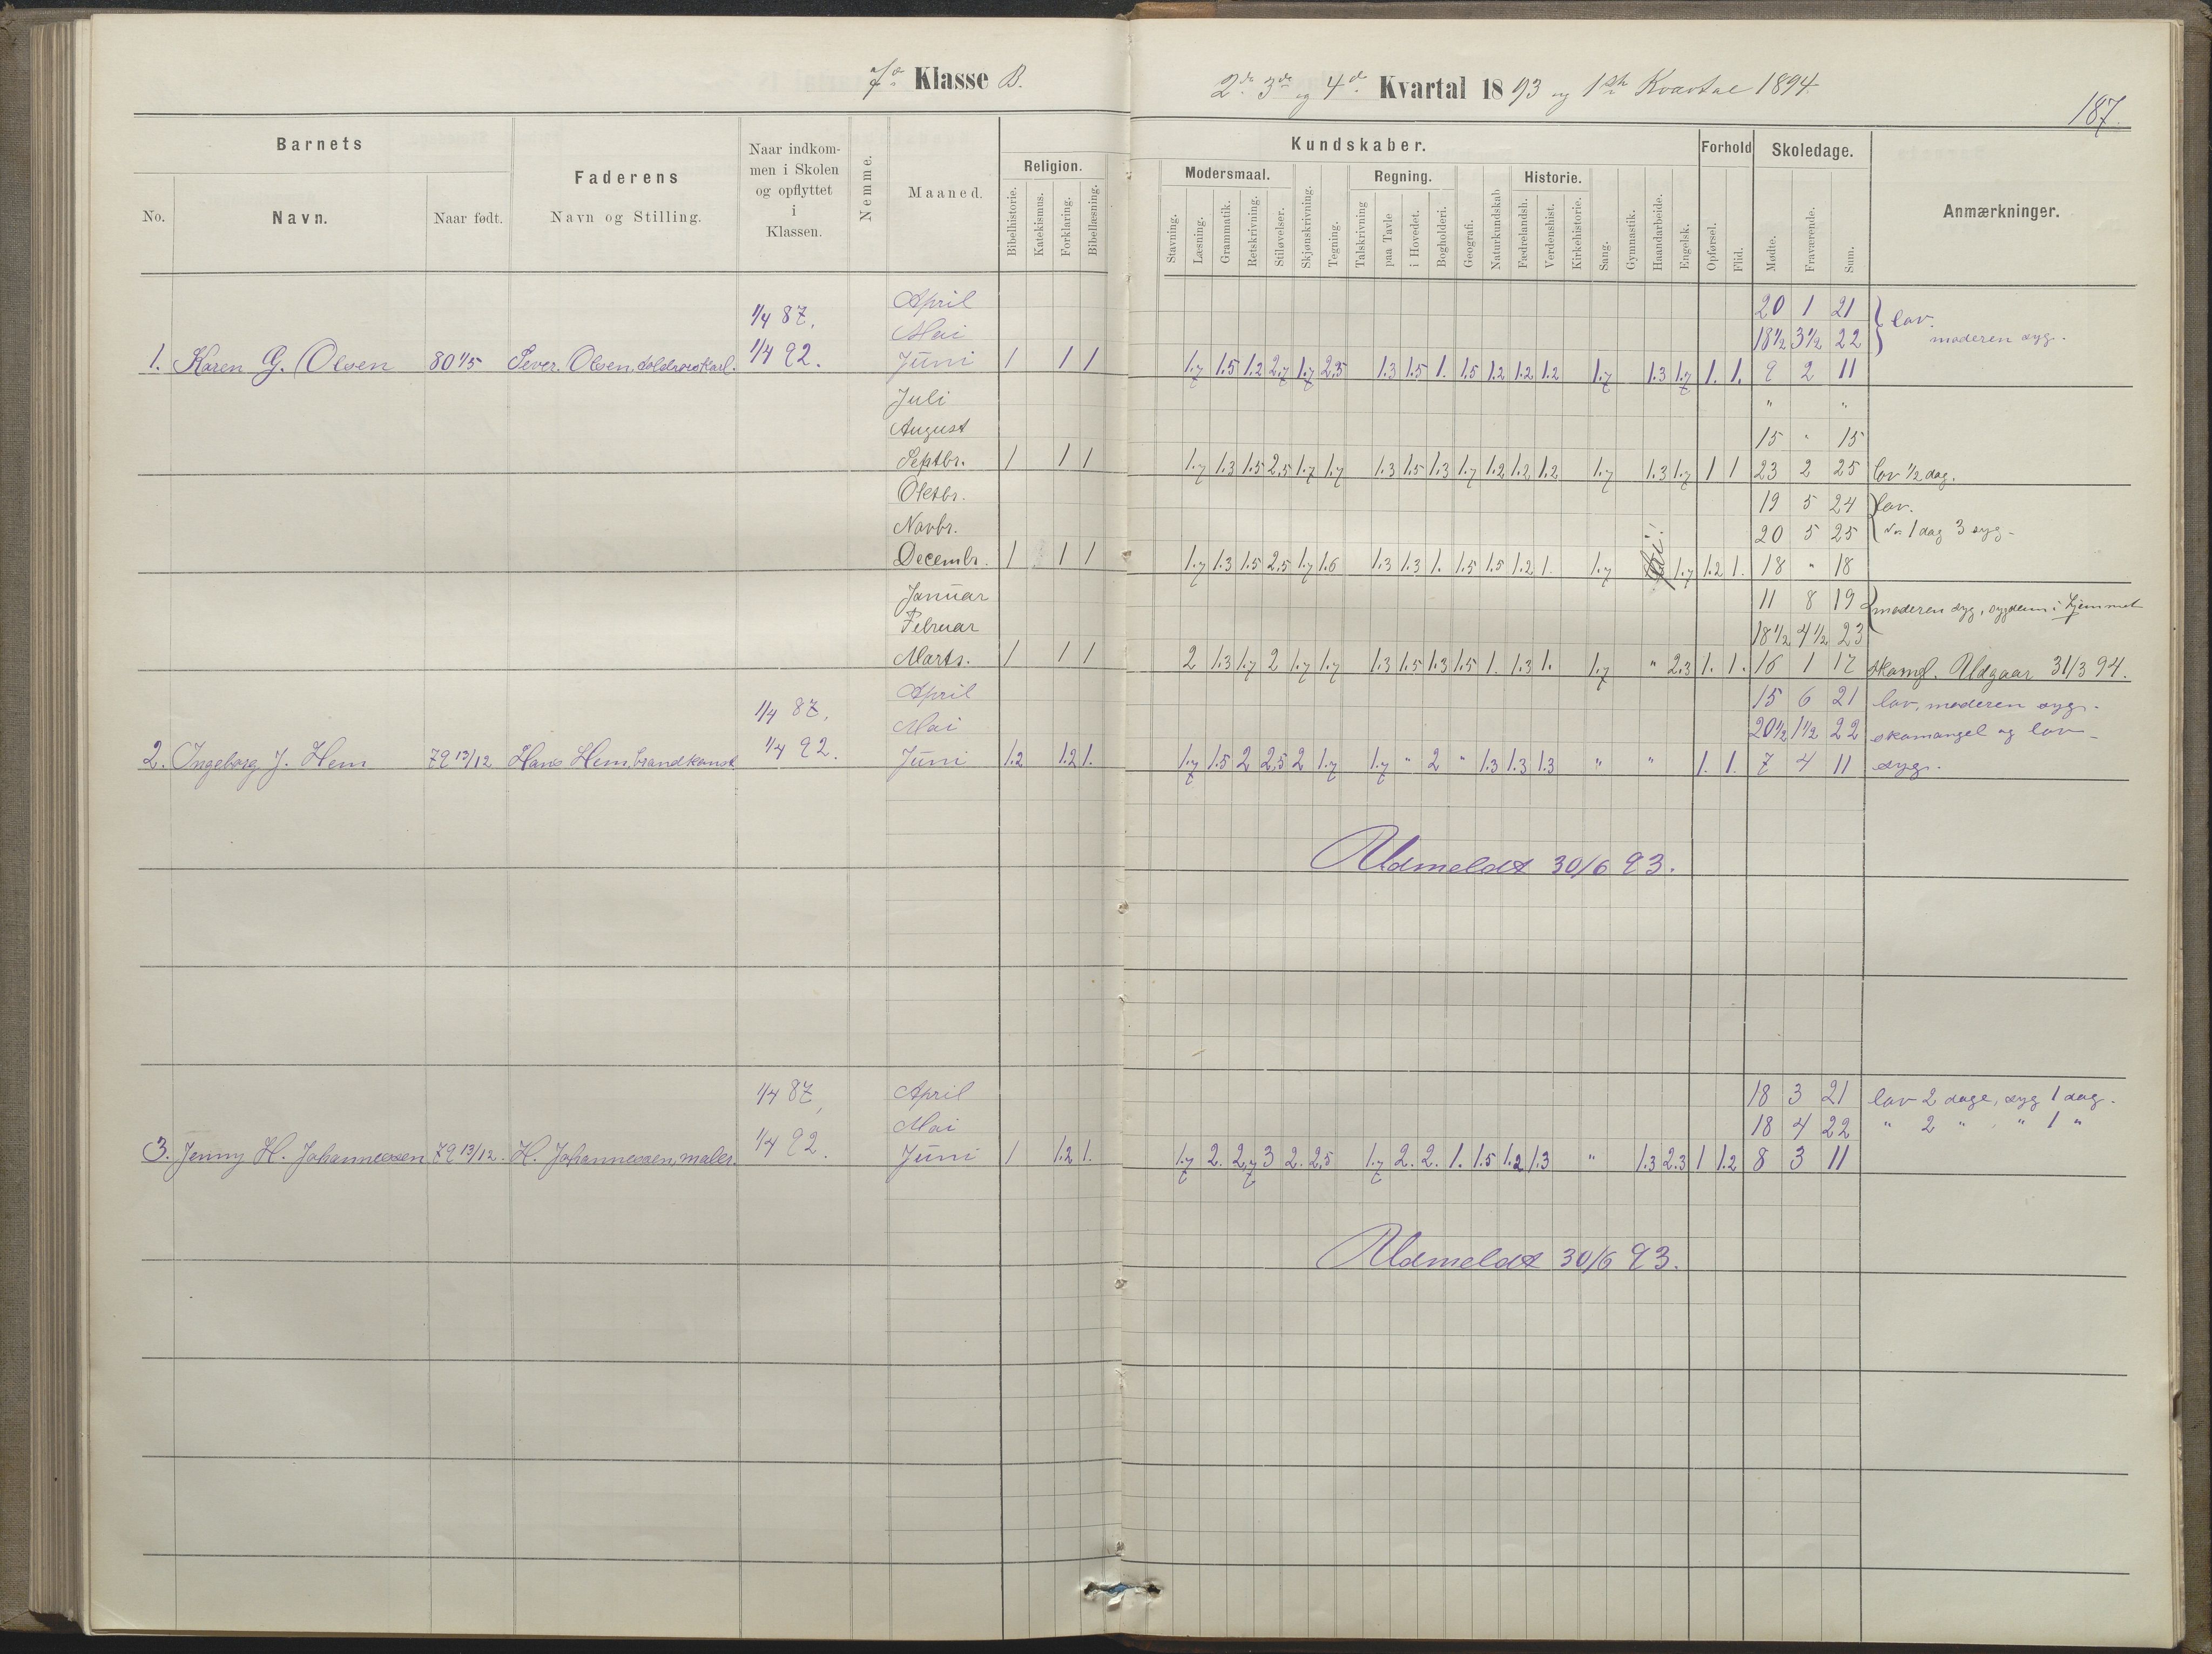 7de Klasse B.
2det 3die og 4de Kvartal 1893 og 1ste Kvartal 1894.
187.
Barnets
Faderens
Naar indkom-
men i Skolen
og opflyttet
i
Klassen.
Nemme.
Maaned.
Religion.
Kundskaber.
Forhold
Skoledage.
Anmærkninger.
Modersmaal.
Regning.
Historie.
No.
Navn.
Naar født.
Navn og Stilling.
Bibelhistorie.
Katekismus.
Forklaring.
Bibellæsning.
Stavning.
Læsning.
Grammatik.
Retskrivning.
Stiløvelser.
Skjønskrivning.
Tegning.
Talskrivning
paa Tavle
i Hovedet.
Bogholderi.
Geografi.
Naturkundskab
Fædrelandsh.
Verdenshist.
Kirkehistorie.
Sang.
Gymnastik.
Haandarbeide.
Engelsk.
Opførsel.
Flid.
Mødte.
Fraværende.
Sum.
1/4 87. April 20 1 21 lov.
Mai 18 1/2 3 1/2 22 moderen syg.
1. Karen G. Olsen 80 1/5 Sever. Olsen, 1/4 92. Juni 1 1 1 1.7 1.5 1.2 2.7 1.7 2.5 1.3 1.5 1. 1.5 1.2 1.2 1.2 1.7 1.3 1.7 1. 1. 9 2 11
Juli " "
August 15 " 15
Septbr. 1 1 1 1.7 1.3 1.5 2.5 1.7 1.7 1.3 1.5 1.3 1.7 1.2 1.2 1.2 1.7 1.3 1.7 1 1 23 2 25 lov 1/2 dag.
Oktbr. 19 5 24 lov.
Novbr. 20 5 25 1 dag 3 syg.
Decembr. 1 1 1 1.7 1.3 1.5 2.5 1.7 1.6 1.3 1.3 1. 1.5 1.5 1.2 1. 1.7 1.7 1.2 1. 18 " 18
Januar 11 8 19 moderen syg, sygdom i hjemmet
Februar 18 1/2 4 1/2 23
Marts. 1 1 1 2 1.3 1.7 2 1.7 1.7 1.3 1.5 1.3 1.5 1. 1.3 1. 1.7 " 2.3 1. 1. 16 1 17 skomgl. Udgaar 31/3 94.
1/4 87. April 15 6 21 lov, moderen syg.
Mai 20 1/2 1 1/2 22 skomangel og lov
2. Ingeborg J. Hem 79 13/12 Hans Hem, brandkonst. 1/4 92. Juni 1.2 1.2 1. 1.7 1.5 2 2.5 2 1.7 1.7 " 2 " 1.3 1.3 1.3 " " 1. 1. 7 4 11 syg.
Udmeldt 30/6 93.
1/4 87, April 18 3 21 lov 2 dage, syg 1 dag.
Mai 18 4 22 " 2 " , " 1 "
3. Jenny H. Johannessen 79 13/12. H. Johannessen, maler. 1/4 92. Juni 1 1.2 1. 1.7 2. 2.7 3 2. 2.5 1.7 2. 2. 1. 1.5 1.2 1.3 " 1.3 2.3 1 1.2 8 3 11
Udmeldt 30/6 93.